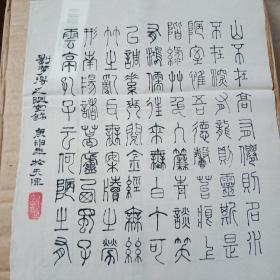 山不在高有僊則名水
不在深有龍則靈斯是
陋室惟吾德馨苔痕上
階綠艸色入簾青談笑
有鴻儒往來無白丁可
以調素琴閱金經無絲
竹之亂耳無案牘之勞
形南陽諸葛廬西蜀子
雲亭孔子云何陋之有
劉禹錫之陋室銘 於天津